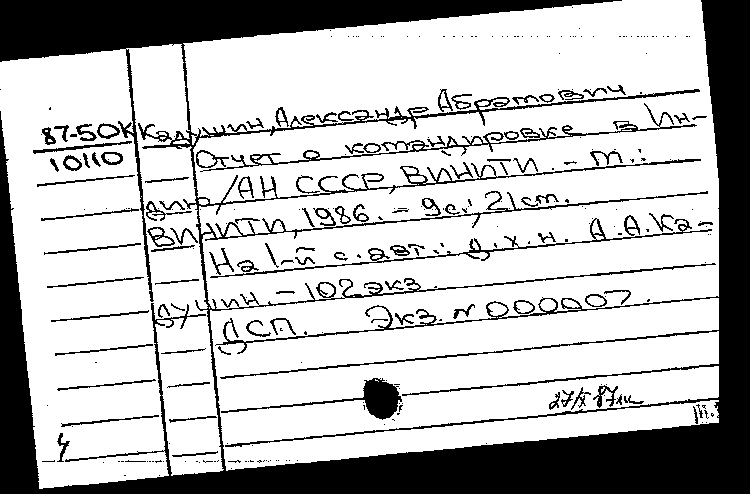 87-50К Кадушин, Александр Абрамович.
10110 Отчет о командировке в Ин-
дию / АН СССР, ВИНИТИ. - М.:
ВИНИТИ, 1986. - 9 с.; 21 см.
На 1-й с. авт.: д.х.н. А.А. Ка-
душин. - 102 экз.
ДСП. Экз. N 000007.
4